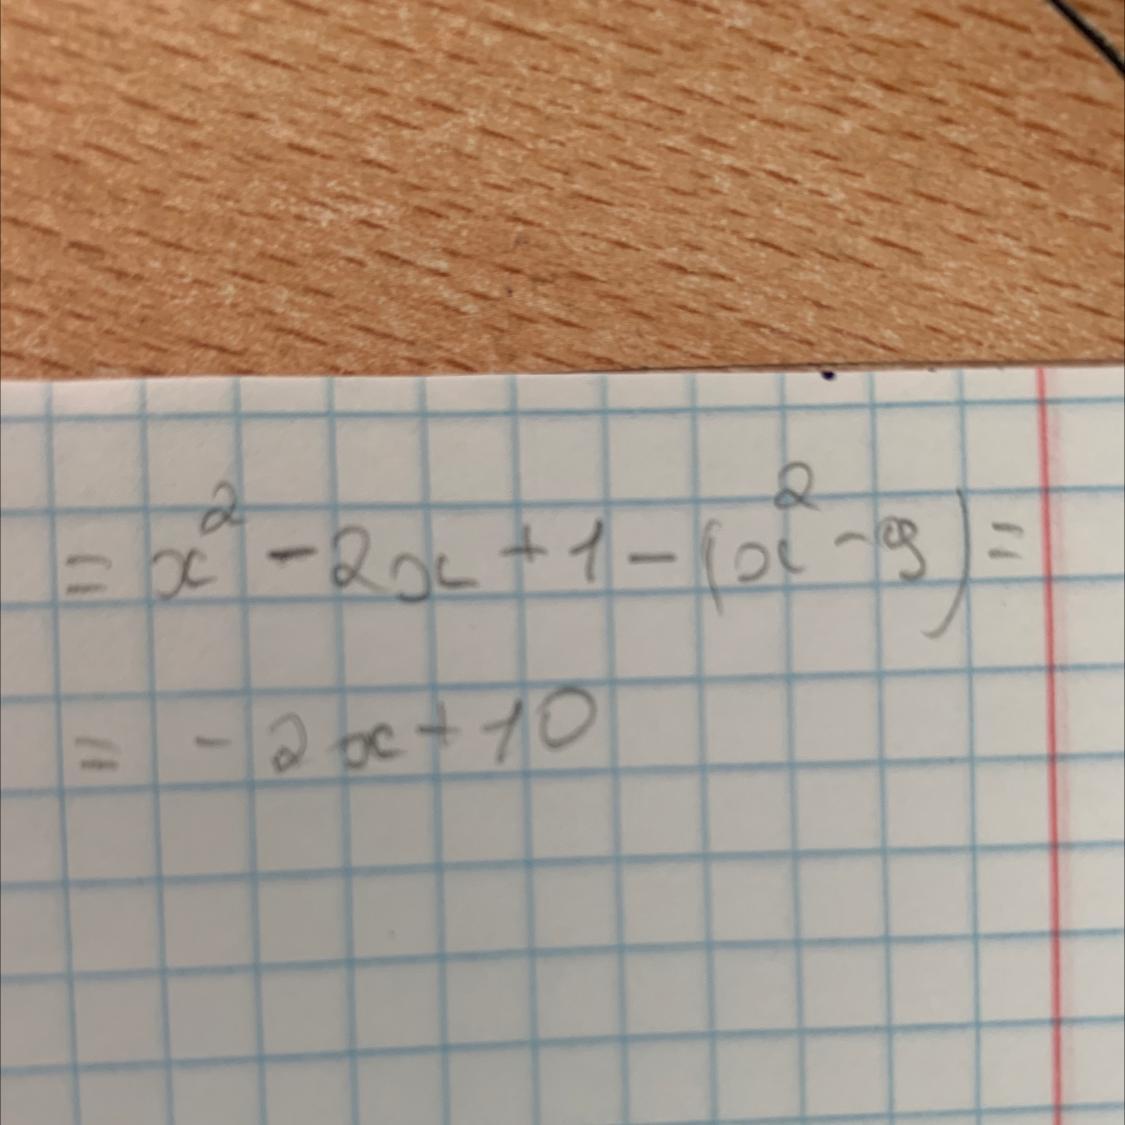 = x² - 2x + 1 - (x² - 9) =
= - 2x + 10